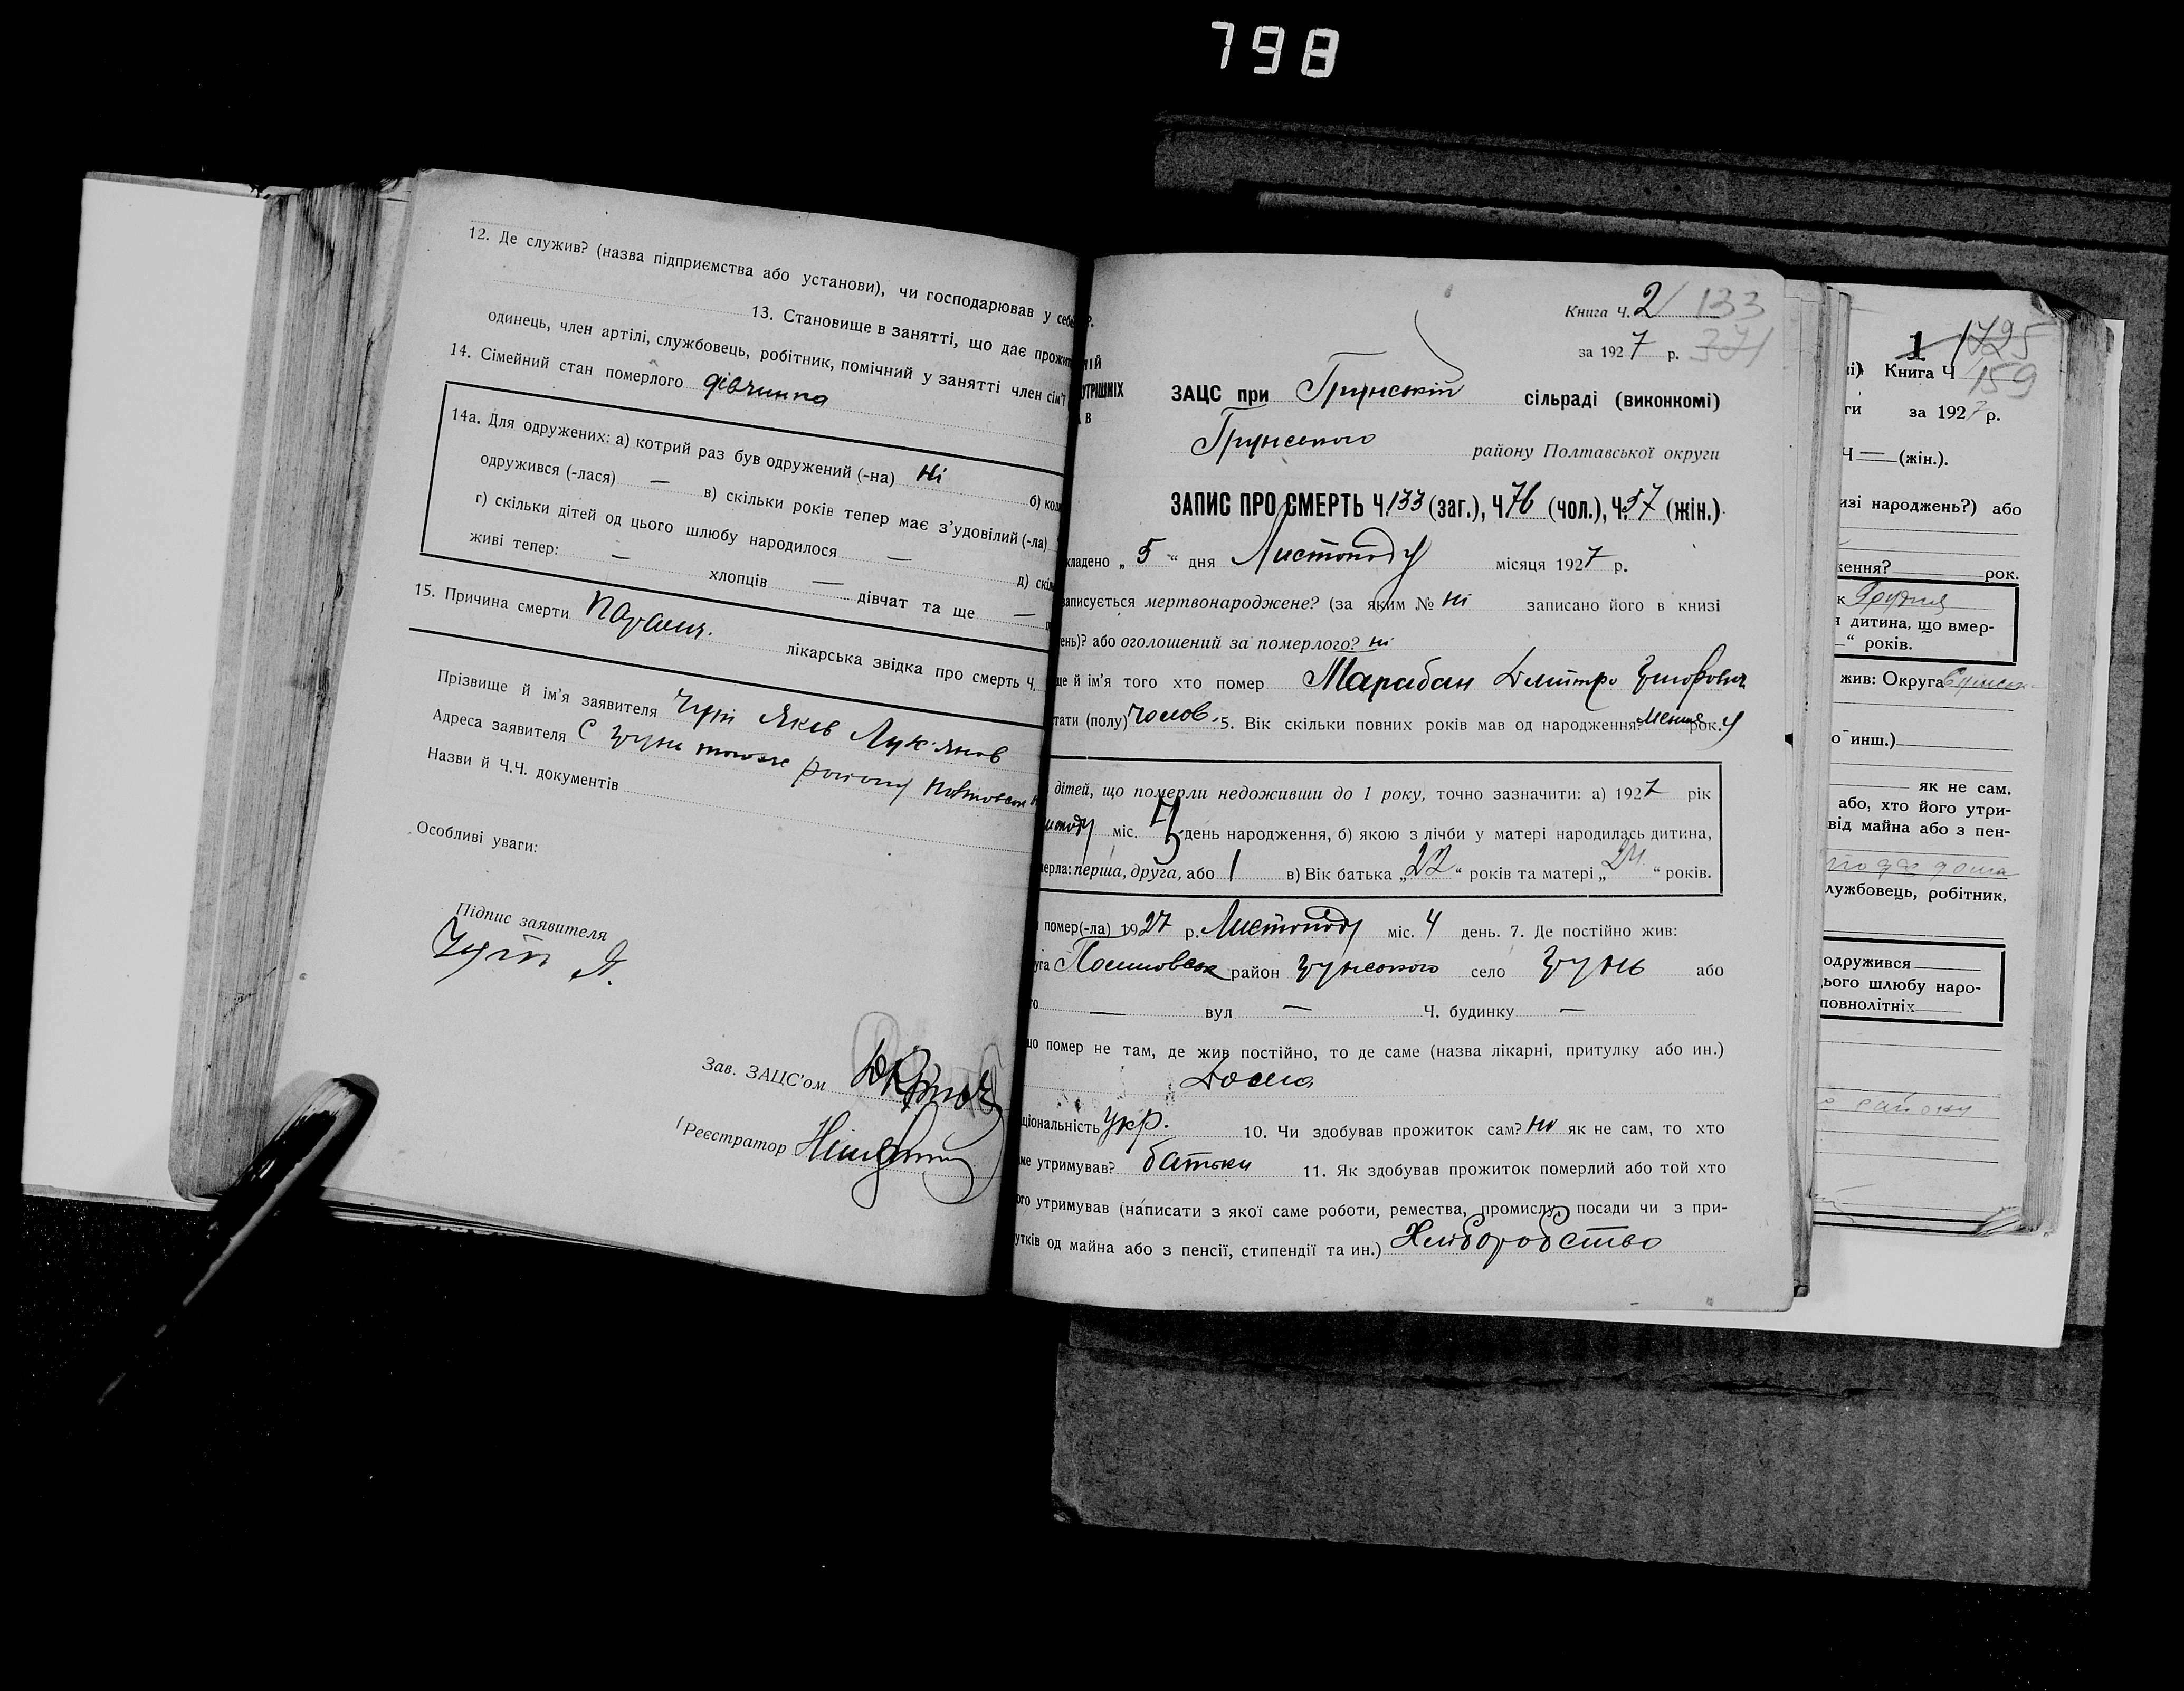 798
12. Де служив? (назва підприємства або установи), чи господарював у себе?
13. Становище в занятті, що дає прожит
одинець, член артілі, службовець, робітник, помічний у занятті член сім'ї
14. Сімейний стан померлого дівчинка
14а. Для одружених: а) котрий раз був одружений (-на) ні б) кол
одружився (-лася) — в) скільки років тепер має з'удовілий (-ла)
г) скільки дітей од цього шлюбу народилося — д) скіл
живі тепер: — хлопців — дівчат та ще —
15. Причина смерти лікарська звідка про смерть Ч.
Прізвище й ім'я заявителя Яков Лук'янов
Адреса заявителя С
Назви й Ч.Ч. документів
Особливі уваги:
Підпис заявителя
Зав. ЗАЦС'ом
Реєстратор
Книга Ч. 2/ 133
за 1927 р. 371
ній
утрішніх
в
ЗАЦС при Грунській сільраді (виконкомі)
Грунського району Полтавської округи
ЗАПИС ПРО СМЕРТЬ Ч 133 (заг.), Ч 76 (чол.), Ч. 57 (жін.)
кладено „ 5 " дня Листопаду місяця 1927 р.
записується мертвонароджене? (за яким № ні записано його в книзі
ень)? або оголошений за померлого? ні
ще й ім'я того хто помер Марабан Дмитро
тати (полу) чолов. 5. Вік скільки повних років мав од народження: менше рок. у
дітей, що померли недоживши до 1 року, точно зазначити: а) 1927 рік
міс. день народження, б) якою з лічби у матері народилась дитина,
мерла: перша, друга, або 1 в) Вік батька „ 22 " років та матері „ 24 " років.
помер(-ла) 1927 р. Листопаду міс. 4 день. 7. Де постійно жив:
уга район грунського село Грунь або
го — вул — Ч. будинку —
що помер не там, де жив постійно, то де саме (назва лікарні, притулку або ин.)
Дома
ціональність укр. 10. Чи здобував прожиток сам? ні як не сам, то хто
ме утримував? батьки 11. Як здобував прожиток померлий або той хто
ого утримував (написати з якої саме роботи, ремества, промислу, посади чи з при-
утків од майна або з пенсії, стипендії та ин.) Хліборобство
1 1725
і) Книга Ч 159
ги за 1927 р.
Ч — (жін.).
изі народжень?) або
ження? рок.
к Друга
я дитина, що вмер-
—" років.
жив: Округа Сумськ
о инш.)
як не сам,
або, хто його утри-
від майна або з пен-
лужбовець, робітник,
одружився
ього шлюбу наро-
повнолітніх